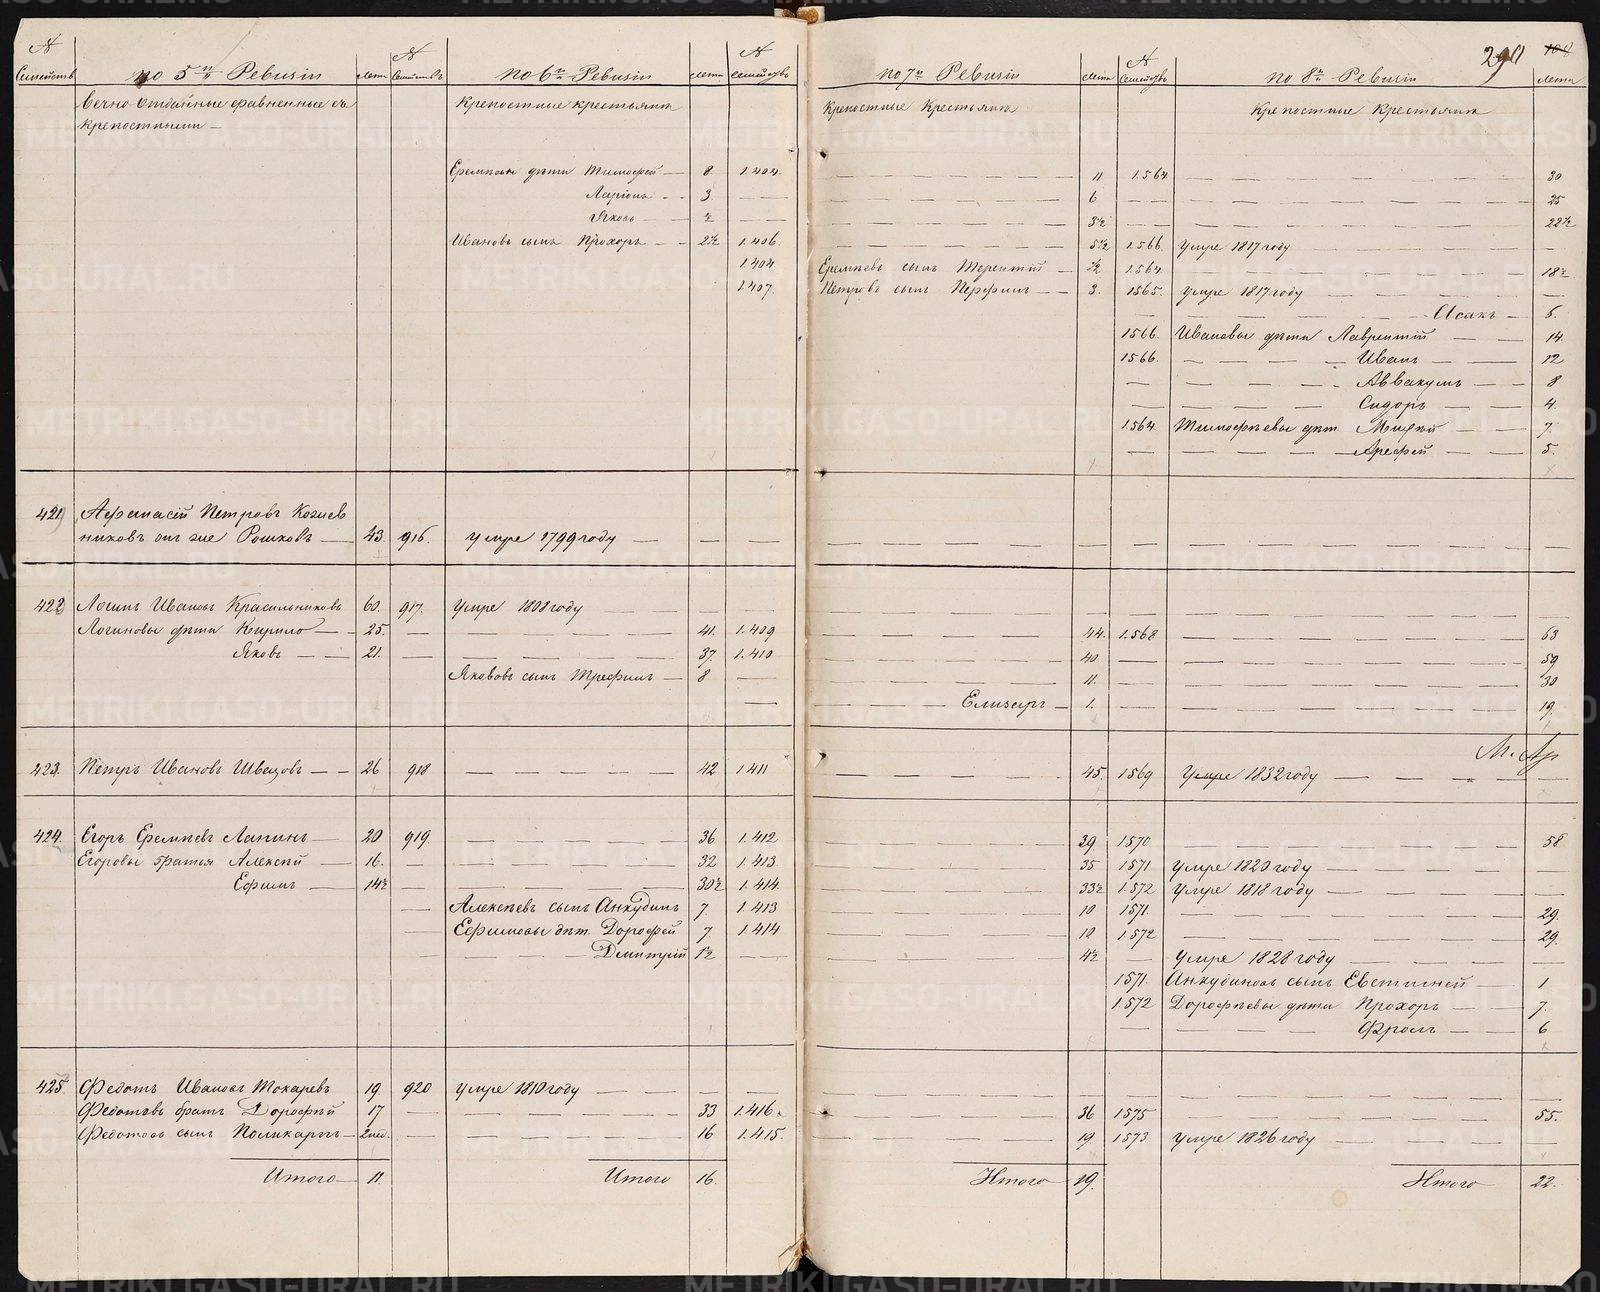 № Семействъ по 5й Ревизiи лета № Семействъ по 6й Ревизiи лета № семействъ по 7й Ревизiи лета № Семействъ по 8й Ревизiи лета
290
Вечно-отданные сравненные съ Крепостные крестьяня Крепостные Крестьяня Крепостные Крестьяня
крепостными —
Еремѣевы дѣти Тимофей — 8 1.404. 11 1.564 30
Ларiонъ 3 6 25
Яковъ — ½ 3½ 22½
Ивановъ сынъ Прохоръ — 2½ 1.406 5½ 1.566 умре 1817 году
1.404 Еремѣевъ сынъ Терентiй — ½ 1.564 18½
1.407. Петровъ сынъ Перфилъ — 3. 1565. умре 1817 году
Исакъ — 5.
1566. Ивановы дѣти Лаврентiй — 14.
1566. Иванъ — 12
Аввакумъ — 8
Сидоръ 4.
1.564. Тимофѣевы дѣт. — 7.
Арефей — 5.
421 Афанасiй Петровъ Кожев
никовъ онъ же Рошковъ — 43 916. умре 1799 году
422 Логинъ Ивановъ Красильниковъ 60. 917. Умре 1808 году
Логиновы дѣти Кирило — 25. 41. 1.409 44. 1.568 63
Яковъ — 21. 37. 1.410 40 59
Якововъ сынъ Трефилъ — 8 11. 30
Елизаръ — 1. 19.
423. Петръ Ивановъ Швецовъ — 26 918 42 1.411 45. 1569 Умре 1832 году
424. Егоръ Еремѣевъ Лапинъ — 20 919. 36 1.412 39. 1570 58
Егоровы братья Алексѣй — 16. 32 1.413 35 1571 Умре 1820 году
Ефимъ — 14½ 30½ 1.414. 33½ 1.572 Умре 1818 году
Алексѣевъ сынъ Анкудинъ 7. 1.413 10 1571. 29.
Ефимовы дѣт. Дорофей 7. 1.414 10 1.572 29.
Дмитрий 1½ 4½ Умре 1828 году
1571. Анкудиновъ сынъ Евстигней — 1
1.572 Дорофѣевы дѣти Прохоръ — 7.
Фролъ — 6
425. Федотъ Ивановъ Токаревъ 19. 920 умре 1810 году
Федотовъ братъ Дорофѣй 17 33 1.416. 36 1575 55.
Федотовъ сынъ Поликарпъ — 2 нед. 16 1.415. 19. 1573 умре 1826 году
Итого — 11. Итого 16. Итого 19. Итого 22.
METRIKI.GASO-URAL.RU